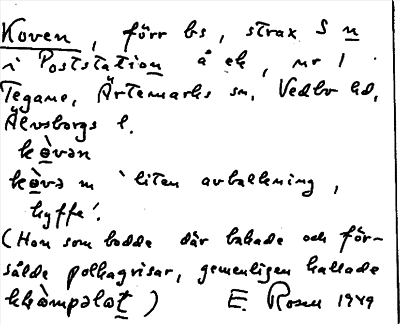 Koven, förr bs, strax S n
i Poststation å ek, nr 1
Tegane, Ärtemarks sn, Vedbo hd,
Älvsborgs l.
kòvən
kòvə m 'liten avbalkning,
kyffe'.
(Hon som bodde där bakade och för-
sålde polkagrisar, gemenligen kallade
E. Rosell 1949